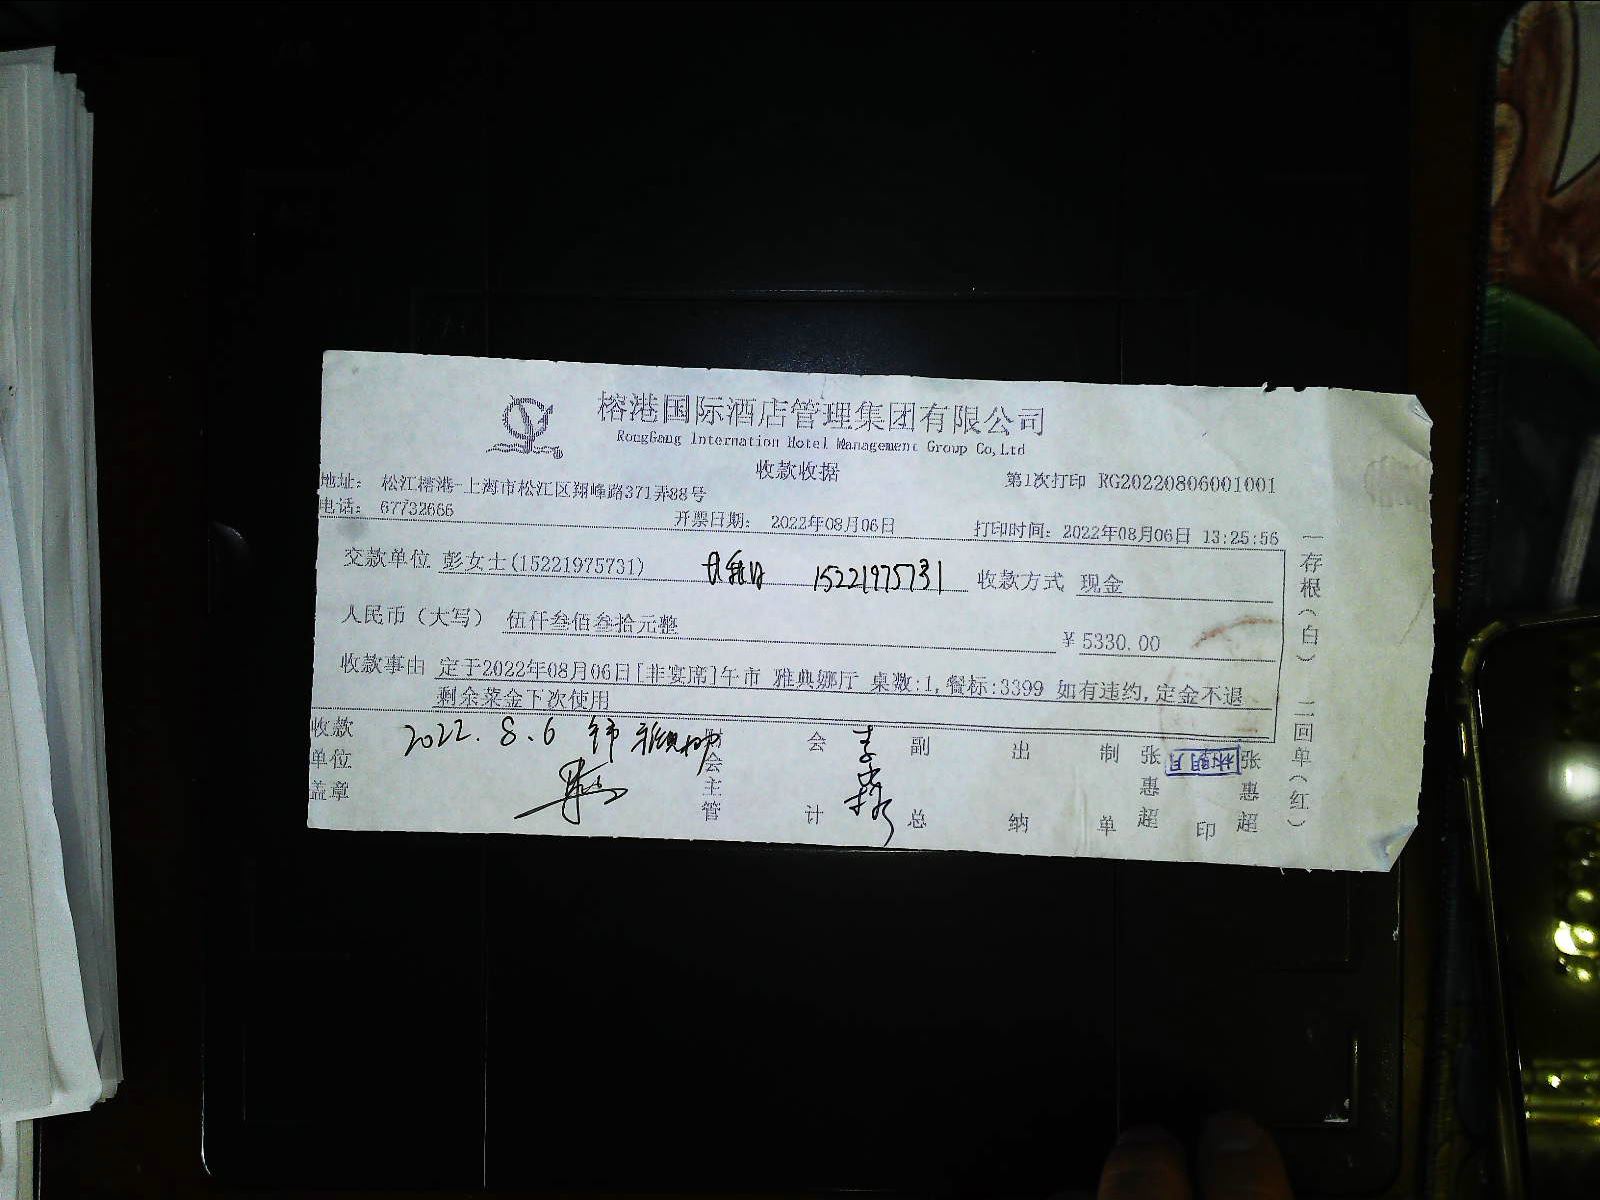 榕港国际酒店管理集团有限公司
RongGang Internation Hotel Management Group Co,Ltd
收款收据
第1次打印 RG20220806001001
地址: 松江榕港-上海市松江区翔峰路371弄88号
电话: 67732666
开票日期: 2022年08月06日
打印时间: 2022年08月06日 13:25:56
交款单位 彭女士(15221975731) 15221975731 收款方式 现金
人民币(大写) 伍仟叁佰叁拾元整 ¥5330.00
收款事由 定于2022年08月06日[非宴席]午市 雅典娜厅 桌数:1,餐标:3399 如有违约,定金不退
剩余菜金下次使用
收款单位盖章
2022.8.6
财会主管
会计
副总
出纳
制单 张惠超
印 张惠超
林明月
一存根(白) 二回单(红)